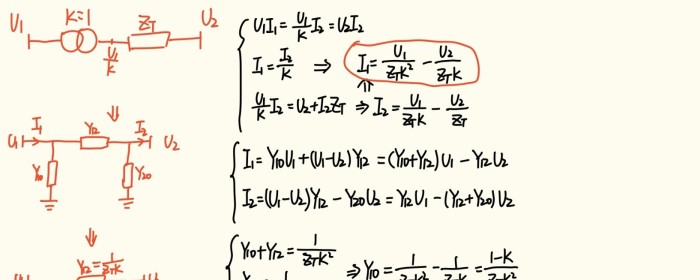 U₁ K=1 Z_T U₂
U₁/K
I₁ Y₁₂ I₂
U₁ U₂
Y₁₀ Y₂₀
Y₁₂=1/(Z_T K)
U₁I₁=(U₁/K)I₂=U₂I₂
I₁=I₂/K ⇒ I₁=U₁/(Z_T K²)-U₂/(Z_T K)
(U₁/K)I₂=U₂+I₂Z_T ⇒ I₂=U₁/(Z_T K)-U₂/Z_T
I₁=Y₁₀U₁+(U₁-U₂)Y₁₂=(Y₁₀+Y₁₂)U₁-Y₁₂U₂
I₂=(U₁-U₂)Y₁₂-Y₂₀U₂=Y₁₂U₁-(Y₁₂+Y₂₀)U₂
Y₁₀+Y₁₂=1/(Z_T K²) ⇒ Y₁₀=1/(Z_T K²)-1/(Z_T K)=(1-K)/(Z_T K²)